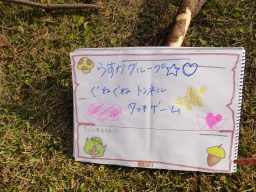 うすかグループ☆♡
ぐねぐねトンネル
タッチゲーム